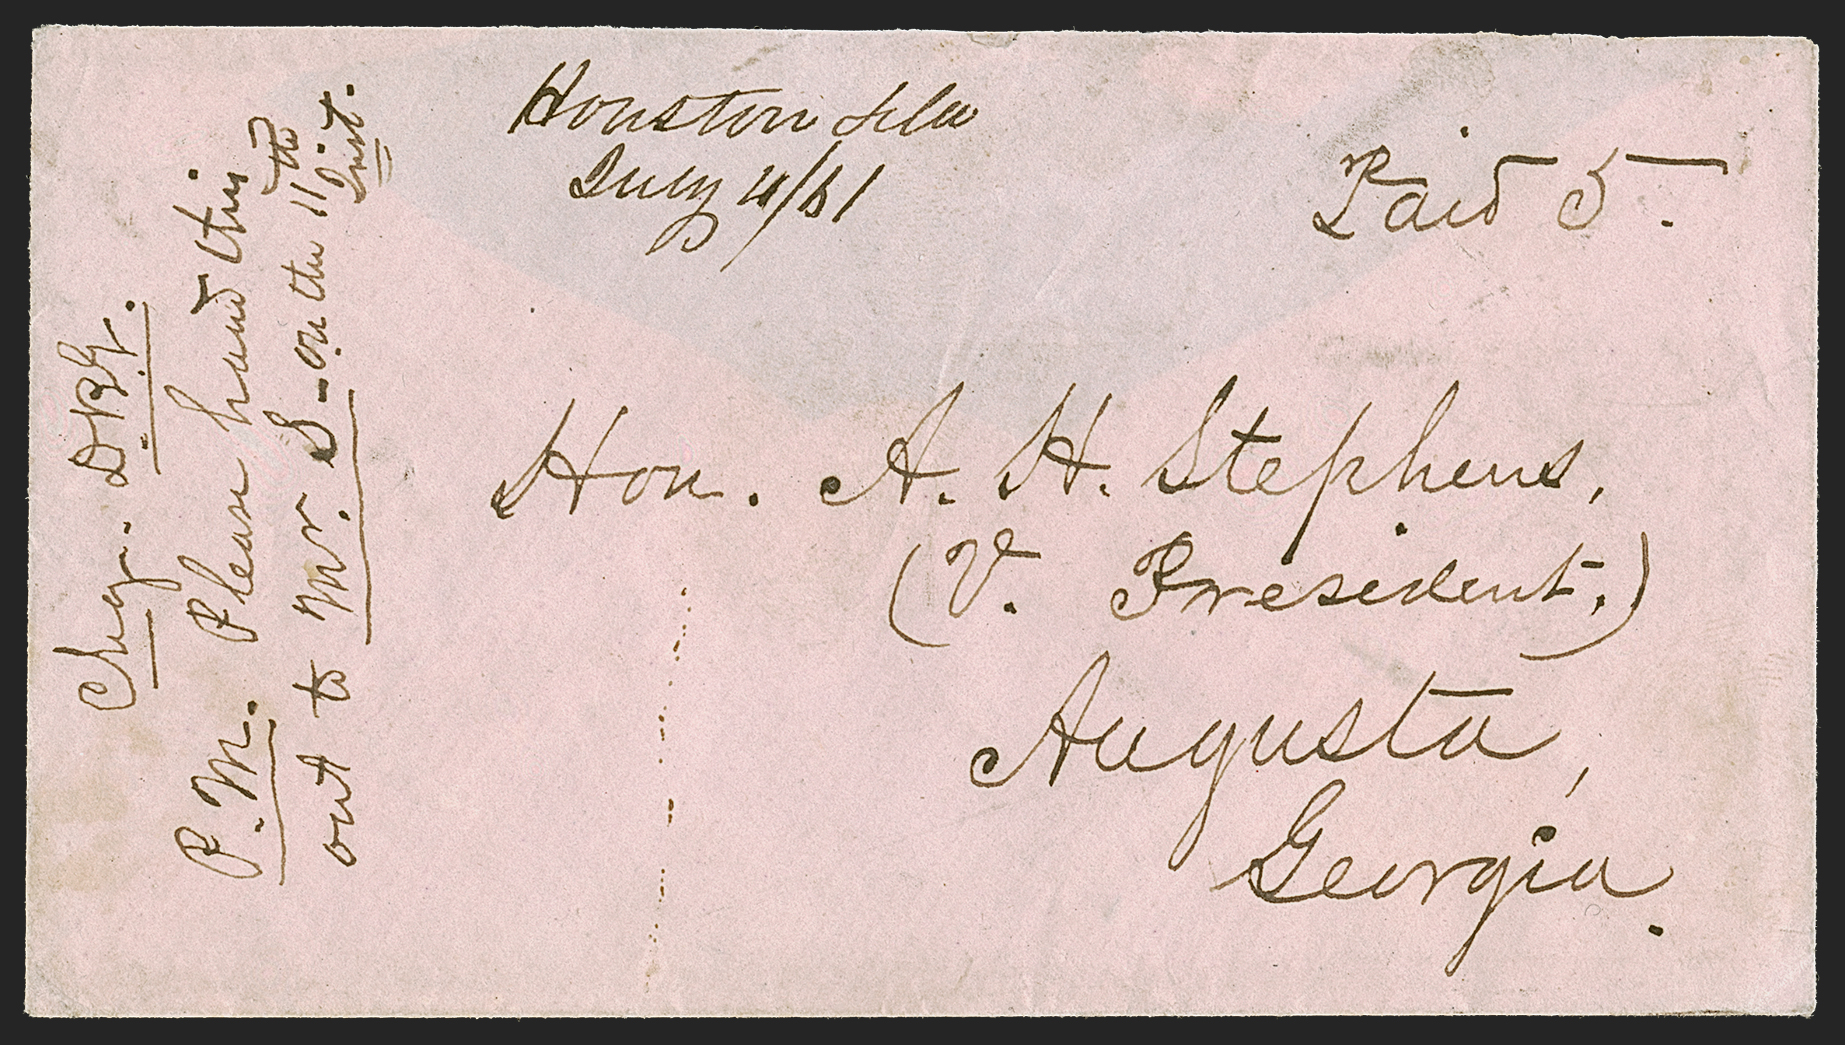 Houston Fla
July 4/61
Paid 5.
Hon. A. H. Stephens,
(V. President.)
Augusta,
Georgia.
Chg. D.B.G.
P.M. Please hand this
out to Mr. S - on the 11th
Inst.